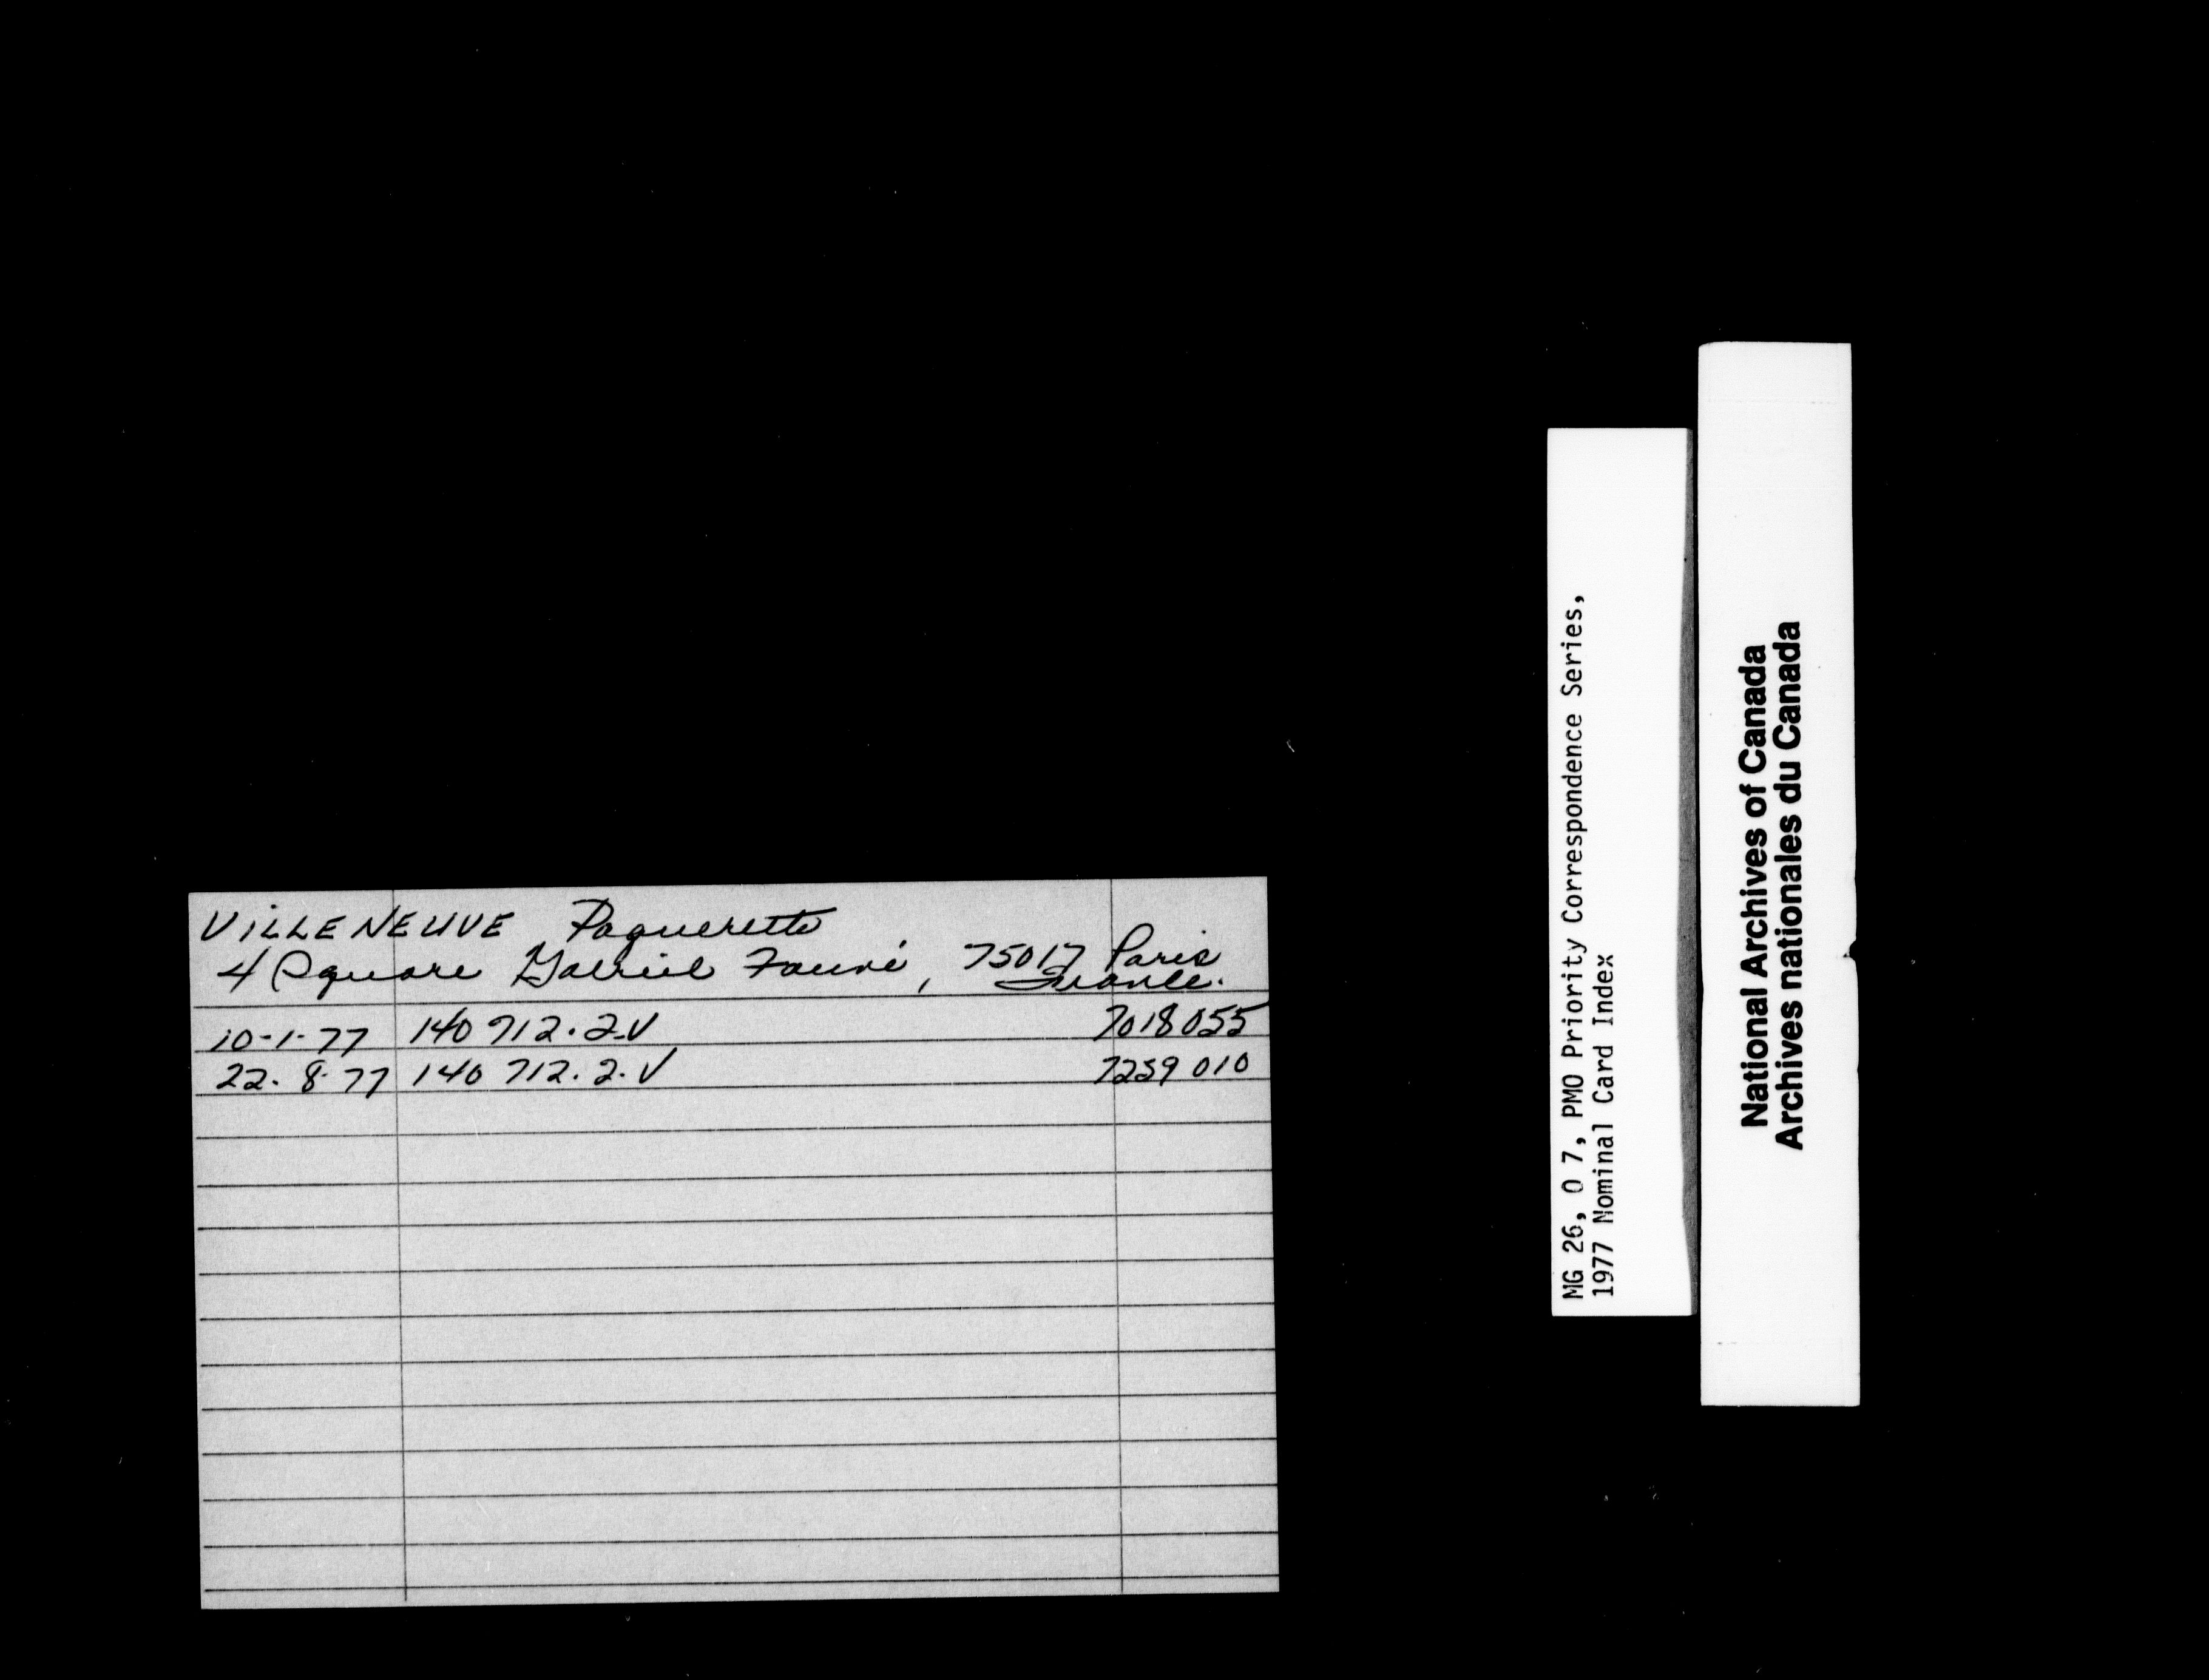 VILLENEUVE Paquerette
4 Square Gabriel Fauré, 75017 Paris
France.
10-1-77 140 712.2.V 7018055
22.8.77 140 712.2.V 7259 010
MG 26, O 7, PMO Priority Correspondence Series,
1977 Nominal Card Index
National Archives of Canada
Archives nationales du Canada